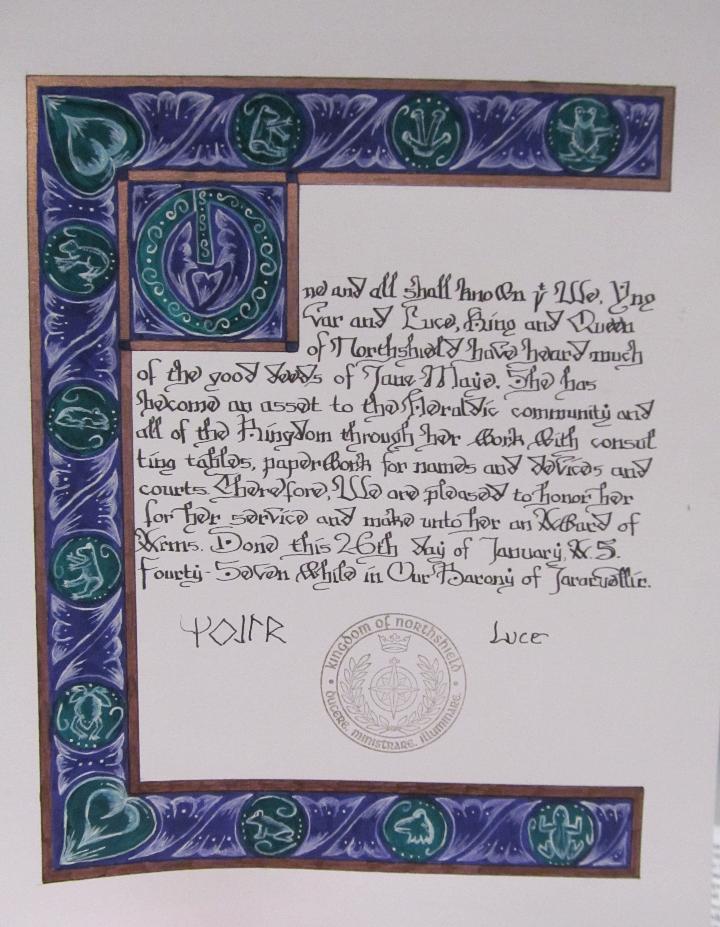 One and all shall known yt We, Yng
var and Luce, King and Queen
of Northshield have heard much
of the good deeds of Jane Maye. She has
become an asset to the Heraldic community and
all of the Kingdom through her work with consul
ting tables, paperwork for names and devices and
courts. Therefore, We are pleased to honor her
for her service and make unto her an Award of
Arms. Done this 26th day of January, A.S.
Fourty-Seven while in Our Barony of Jararvellir.
Luce
Kingdom of Northshield
Ducere, ministrare, illuminare.